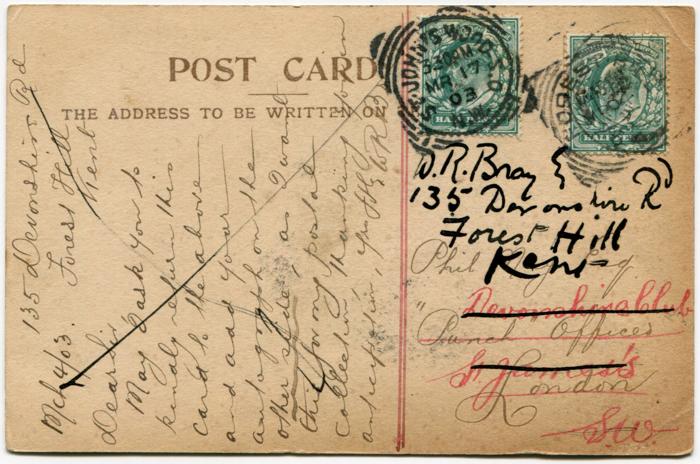 POST CARD
THE ADDRESS TO BE WRITTEN ON
ST. JOHN'S WOOD S.O.
5.30AM
MR 17
03
N.W.
HALFPENNY
HALFPENNY
W. R. Bray Esq
135 Devonshire Rd
Forest Hill
Kent
Phil May Esq
Devonshire Club
"Punch" Offices
St James's
London
S.W.
135 Devonshire Rd
Forest Hill
Kent
Mch 4/03.
Dear Sir
May I ask you to
kindly return this
card to the above
and add your
autograph on the
other side, as I want
this for my postal
collection. Thanking you in
anticipation,